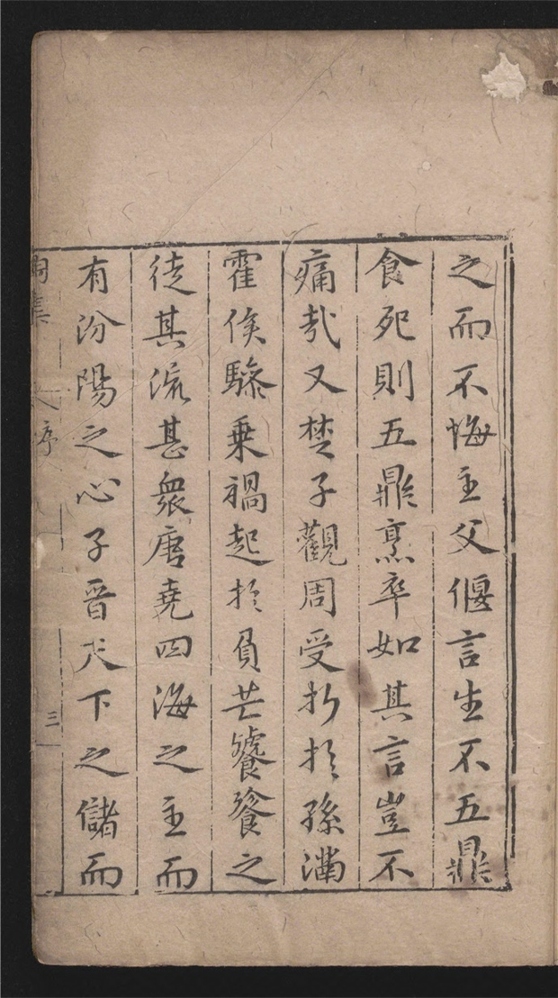 之而不悔主父偃言生不五鼎
食死則五鼎烹卒如其言豈不
痛哉又楚子觀周受折扵孫滿
霍侯驂乗禍起扵負芒饕餮之
徒其流甚衆唐堯四海之主而
有汾陽之心子晋天下之儲而
陶集
序
三